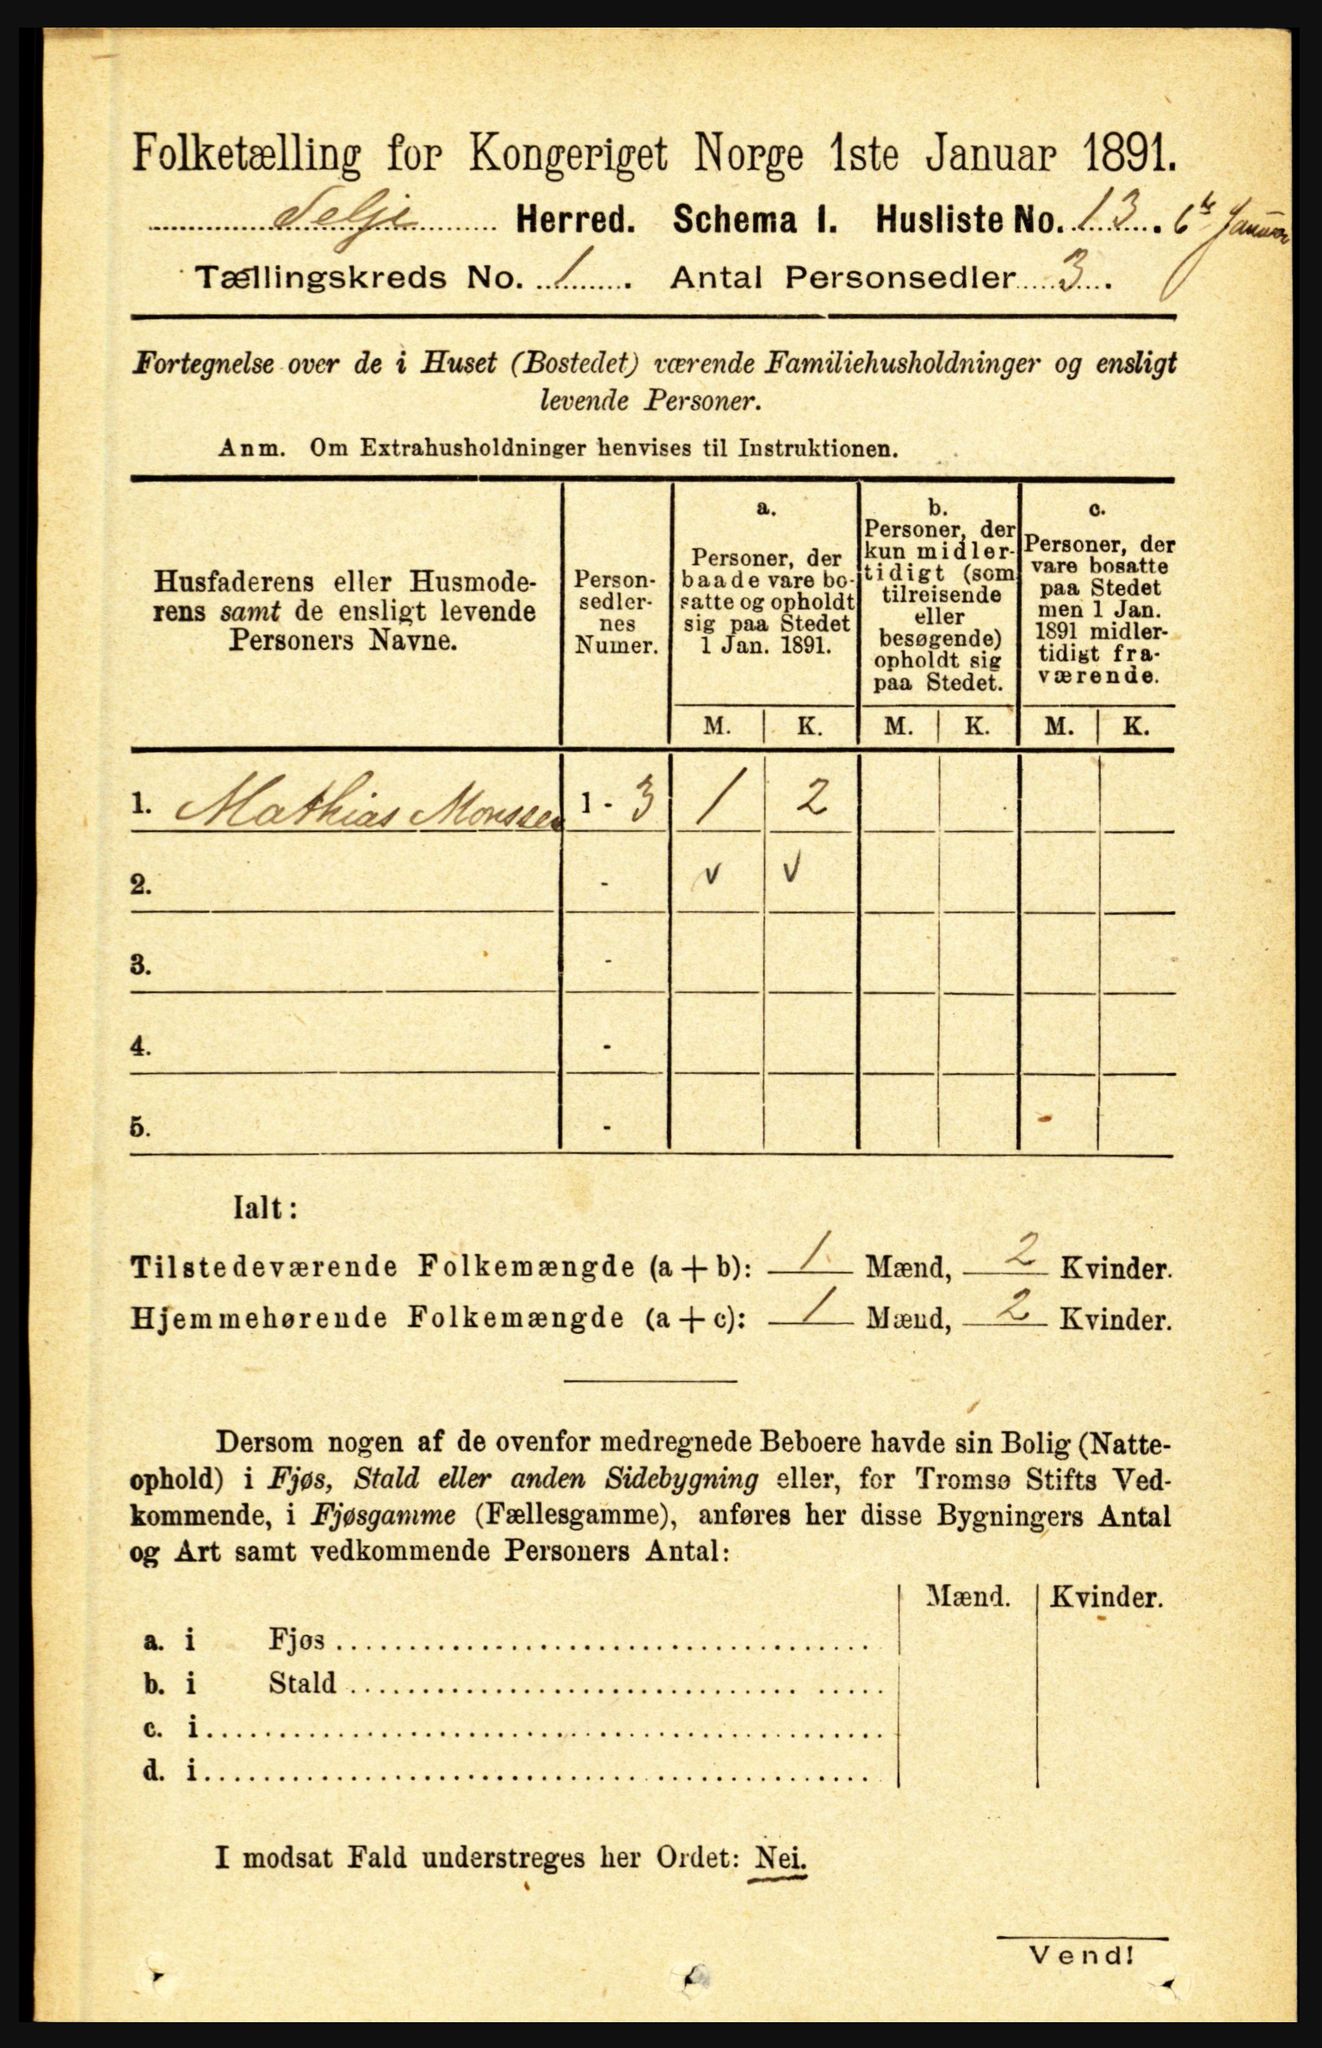 Folketælling for Kongeriget Norge 1ste Januar 1891.
Selje Herred. Schema I. Husliste No. 13. 6te Januar
Tællingskreds No. 1. Antal Personsedler 3.
Fortegnelse over de i Huset (Bostedet) værende Familiehusholdninger og ensligt
levende Personer.
Anm. Om Extrahusholdninger henvises til Instruktionen.
Husfaderens eller Husmode-
rens samt de ensligt levende
Personers Navne.
Person-
sedler-
nes
Numer.
a.
Personer, der
baade vare bo-
satte og opholdt
sig paa Stedet
1 Jan. 1891.
b.
Personer, der
kun midler-
tidigt (som
tilreisende
eller
besøgende)
opholdt sig
paa Stedet.
c.
Personer, der
vare bosatte
paa Stedet
men 1 Jan.
1891 midler-
tidigt fra-
værende.
M. K. M. K. M. K.
1. Mathias Monssen 1 - 3 1 2
2. - v v
3. -
4. -
5. -
Ialt:
Tilstedeværende Folkemængde (a + b): 1 Mænd, 2 Kvinder.
Hjemmehørende Folkemængde (a + c): 1 Mænd, 2 Kvinder.
Dersom nogen af de ovenfor medregnede Beboere havde sin Bolig (Natte-
ophold) i Fjøs, Stald eller anden Sidebygning eller, for Tromsø Stifts Ved-
kommende, i Fjøsgamme (Fællesgamme), anføres her disse Bygningers Antal
og Art samt vedkommende Personers Antal:
Mænd. Kvinder.
a. i Fjøs
b. i Stald
c. i
d. i
I modsat Fald understreges her Ordet: Nei.
Vend!